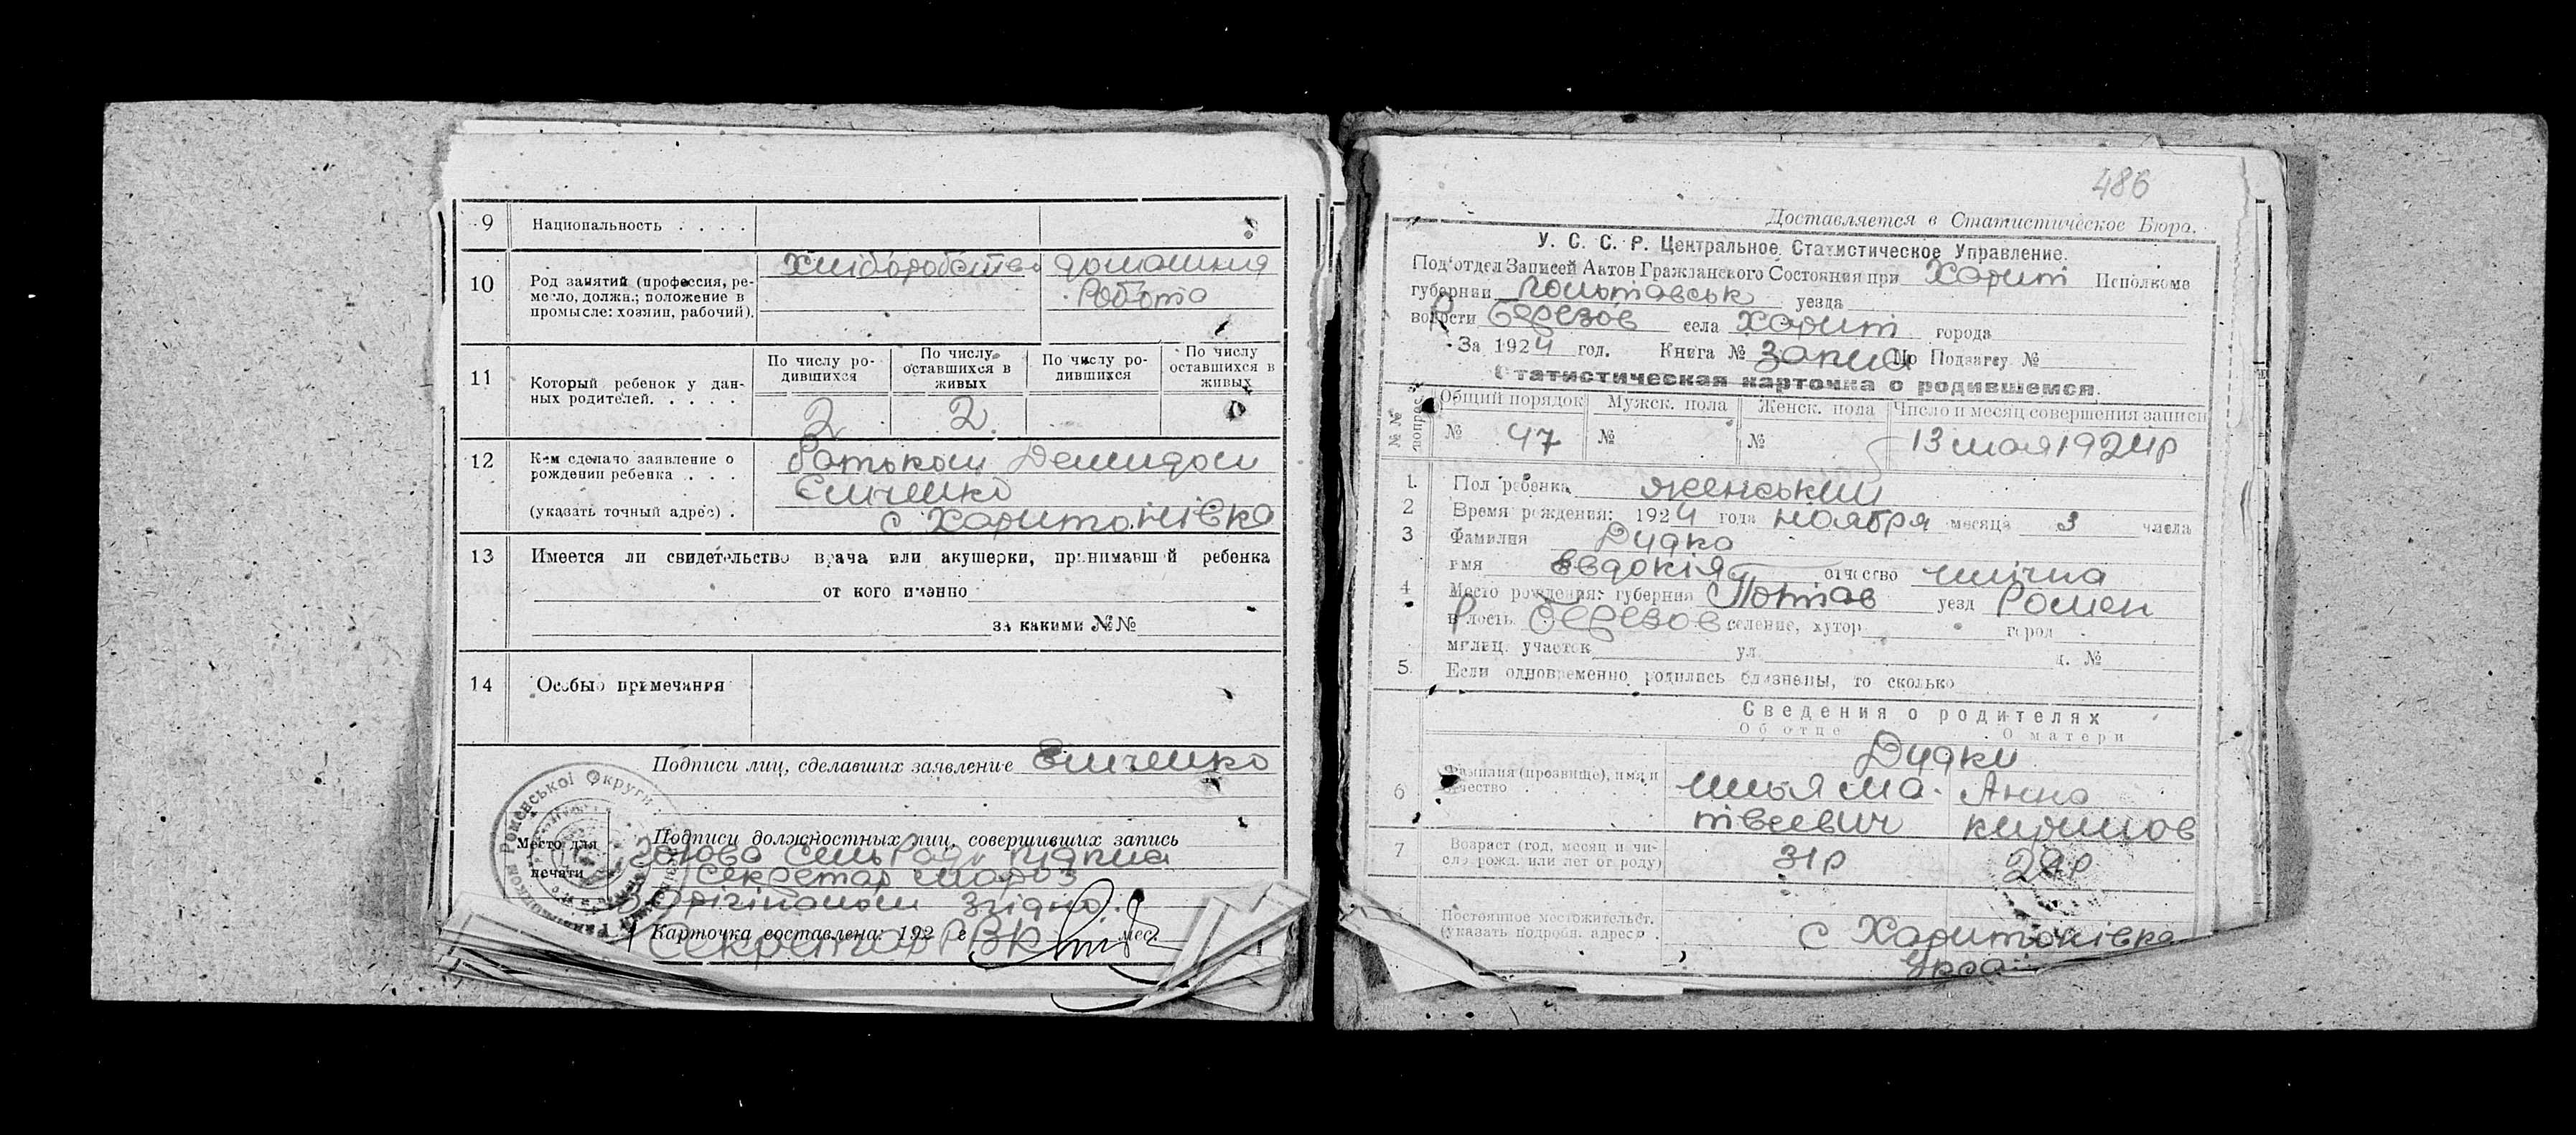 9 Национальность . . . .
10 Род занятий (профессия, ре-
месло, должн.; положение в
промысле: хозяин, рабочий).
Хліборобство домашня
Робота
11 Который ребенок у дан-
ных родителей. . . . .
По числу ро-
дившихся
По числу
оставшихся в
живых
По числу ро-
дившихся
По числу
оставшихся в
живых
2 2
12 Кем сделано заявление о
рождении ребенка . . .
(указать точный адрес) .
Батьком Демидом
с. Харитонівка
13 Имеется ли свидетельство врача или акушерки, принимавшей ребенка
от кого именно
за какими №№
14 Особые примечания
Подписи лиц, сделавших заявление
Место для
печати
Роменської Округи
Подписи должностных лиц, совершивших запись
Голова Сільради підпис
Секретар Мороз
З Орігіналом Згідно.
Карточка составлена: 192 г. мес.
Секретар РВК
486
Доставляется в Статистическое Бюро.
У. С. С. Р. Центральное Статистическое Управление.
Под'отдел Записей Актов Гражданского Состояния при Харит Исполкоме
губернии Полтавськ уезда
волости Березов села Харит города
За 1924 год. Книга № запис По Подзагсу №
Статистическая карточка о родившемся.
№№ вопроса
Общий порядок Мужск. пола Женск. пола Число и месяц совершения записи
№ 47 № № 13 мая 1924р
1. Пол ребенка женський
2 Время рождения: 1924 года ноября месяца 3 числа
3 Фамилия Дудка
имя Евдокія отчество иллічна
4 Место рождения: губерния Полтав уезд Ромен
волость Березов селение, хутор город
милиц. участок ул. д. №
5. Если одновременно родились близнецы, то сколько
Сведения о родителях
Об отце О матери
Дудки
6 Фамилия (прозвище), имя и
отчество
Илья Ма- Анна
твеевич кирилов
7 Возраст (год, месяц и чи-
сло рожд. или лет от роду)
31р
Постоянное местожительст.
(указать подробн. адрес) .
с Харитонівка